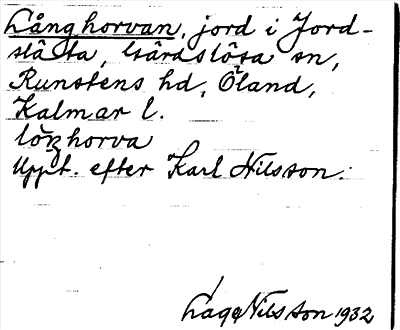 Långhorvan, jord i Jord-
slätta, Gärdslösa sn,
Runstens hd, Öland,
Kalmar l.
löŋhorva
Uppt. efter Karl Nilsson.
Lage Nilsson 1932